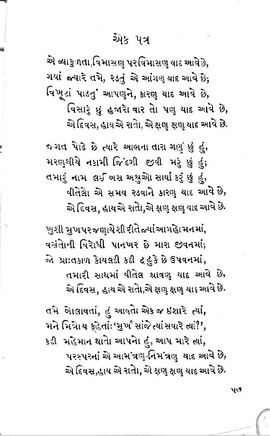 એક પત્ર
એ વ્યાકુળતા, વિમાસણ પર વિમાસણ યાદ આવે છે,
ગયાં જ્યારે તમે, રડતું એ આંગણ યાદ આવે છે;
વિખૂટાં પાડતું આપણને, કારણ યાદ આવે છે,
વિસારું છું હજારો વાર તો પણ યાદ આવે છે,
એ દિવસ, હાય એ રાતો, એ ક્ષણ ક્ષણ યાદ આવે છે.
જગત પોઢે છે ત્યારે આભના તારા ગણું છું હું,
મરણથીયે નકામી જિંદગી જીવી મરું છું હું;
તમારું નામ લઈ બસ અશ્રુઓ સાર્યા કરું છું હું,
વીતેલો એ સમય રડવાને કારણ યાદ આવે છે,
એ દિવસ, હાય એ રાતો, એ ક્ષણ ક્ષણ યાદ આવે છે.
ખુશી મુખ પર જણાયે શી રીતે જ્યાં આગ હો મનમાં,
વસંતોની વિરોધી પાનખર છે મારા જીવનમાં;
જો પ્રાતઃકાળ કોયલડી કદી ટહુકે છે ઉપવનમાં,
તમારી સાથમાં વીતેલ શ્રાવણ યાદ આવે છે,
એ દિવસ, હાય એ રાતો, એ ક્ષણ ક્ષણ યાદ આવે છે.
તમે બોલાવતાં, હું આવતો એક જ ઇશારે ત્યાં,
મને મિત્રોય કહેતાં: ‘મુર્ખ સાંજે ત્યાં સવારે ત્યાં?’,
કદી મહેમાન થાતો આપનો હું, આપ મારે ત્યાં,
પરસ્પરનાં એ આમંત્રણ-નિમંત્રણ યાદ આવે છે,
એ દિવસ, હાય એ રાતો, એ ક્ષણ ક્ષણ યાદ આવે છે.
૫૧૭